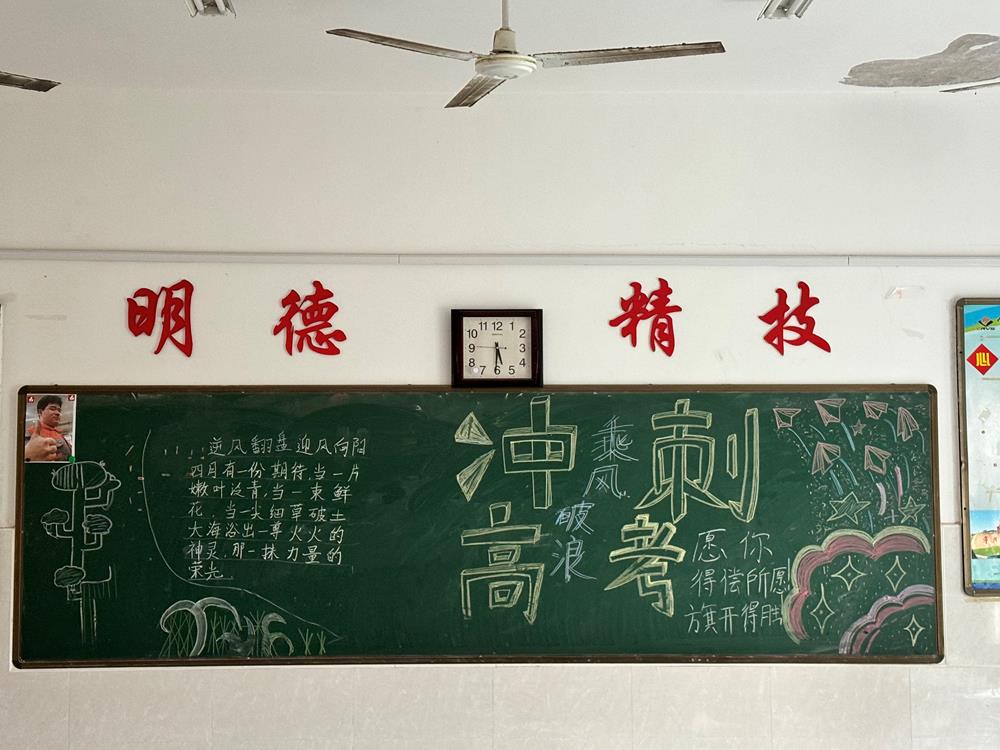 明德 精技
11 12 1
10 2
9 3
8 4
7 6 5
逆风翻盘迎风向阳
四月有一份期待,当一片
嫩叶泛青,当一束鲜
花,当一尖细草破土
大海浴出一尊火火的
神灵,那一抹力量的
荣光
冲刺
高考
乘风
破浪
愿你
得偿所愿
旗开得胜
心